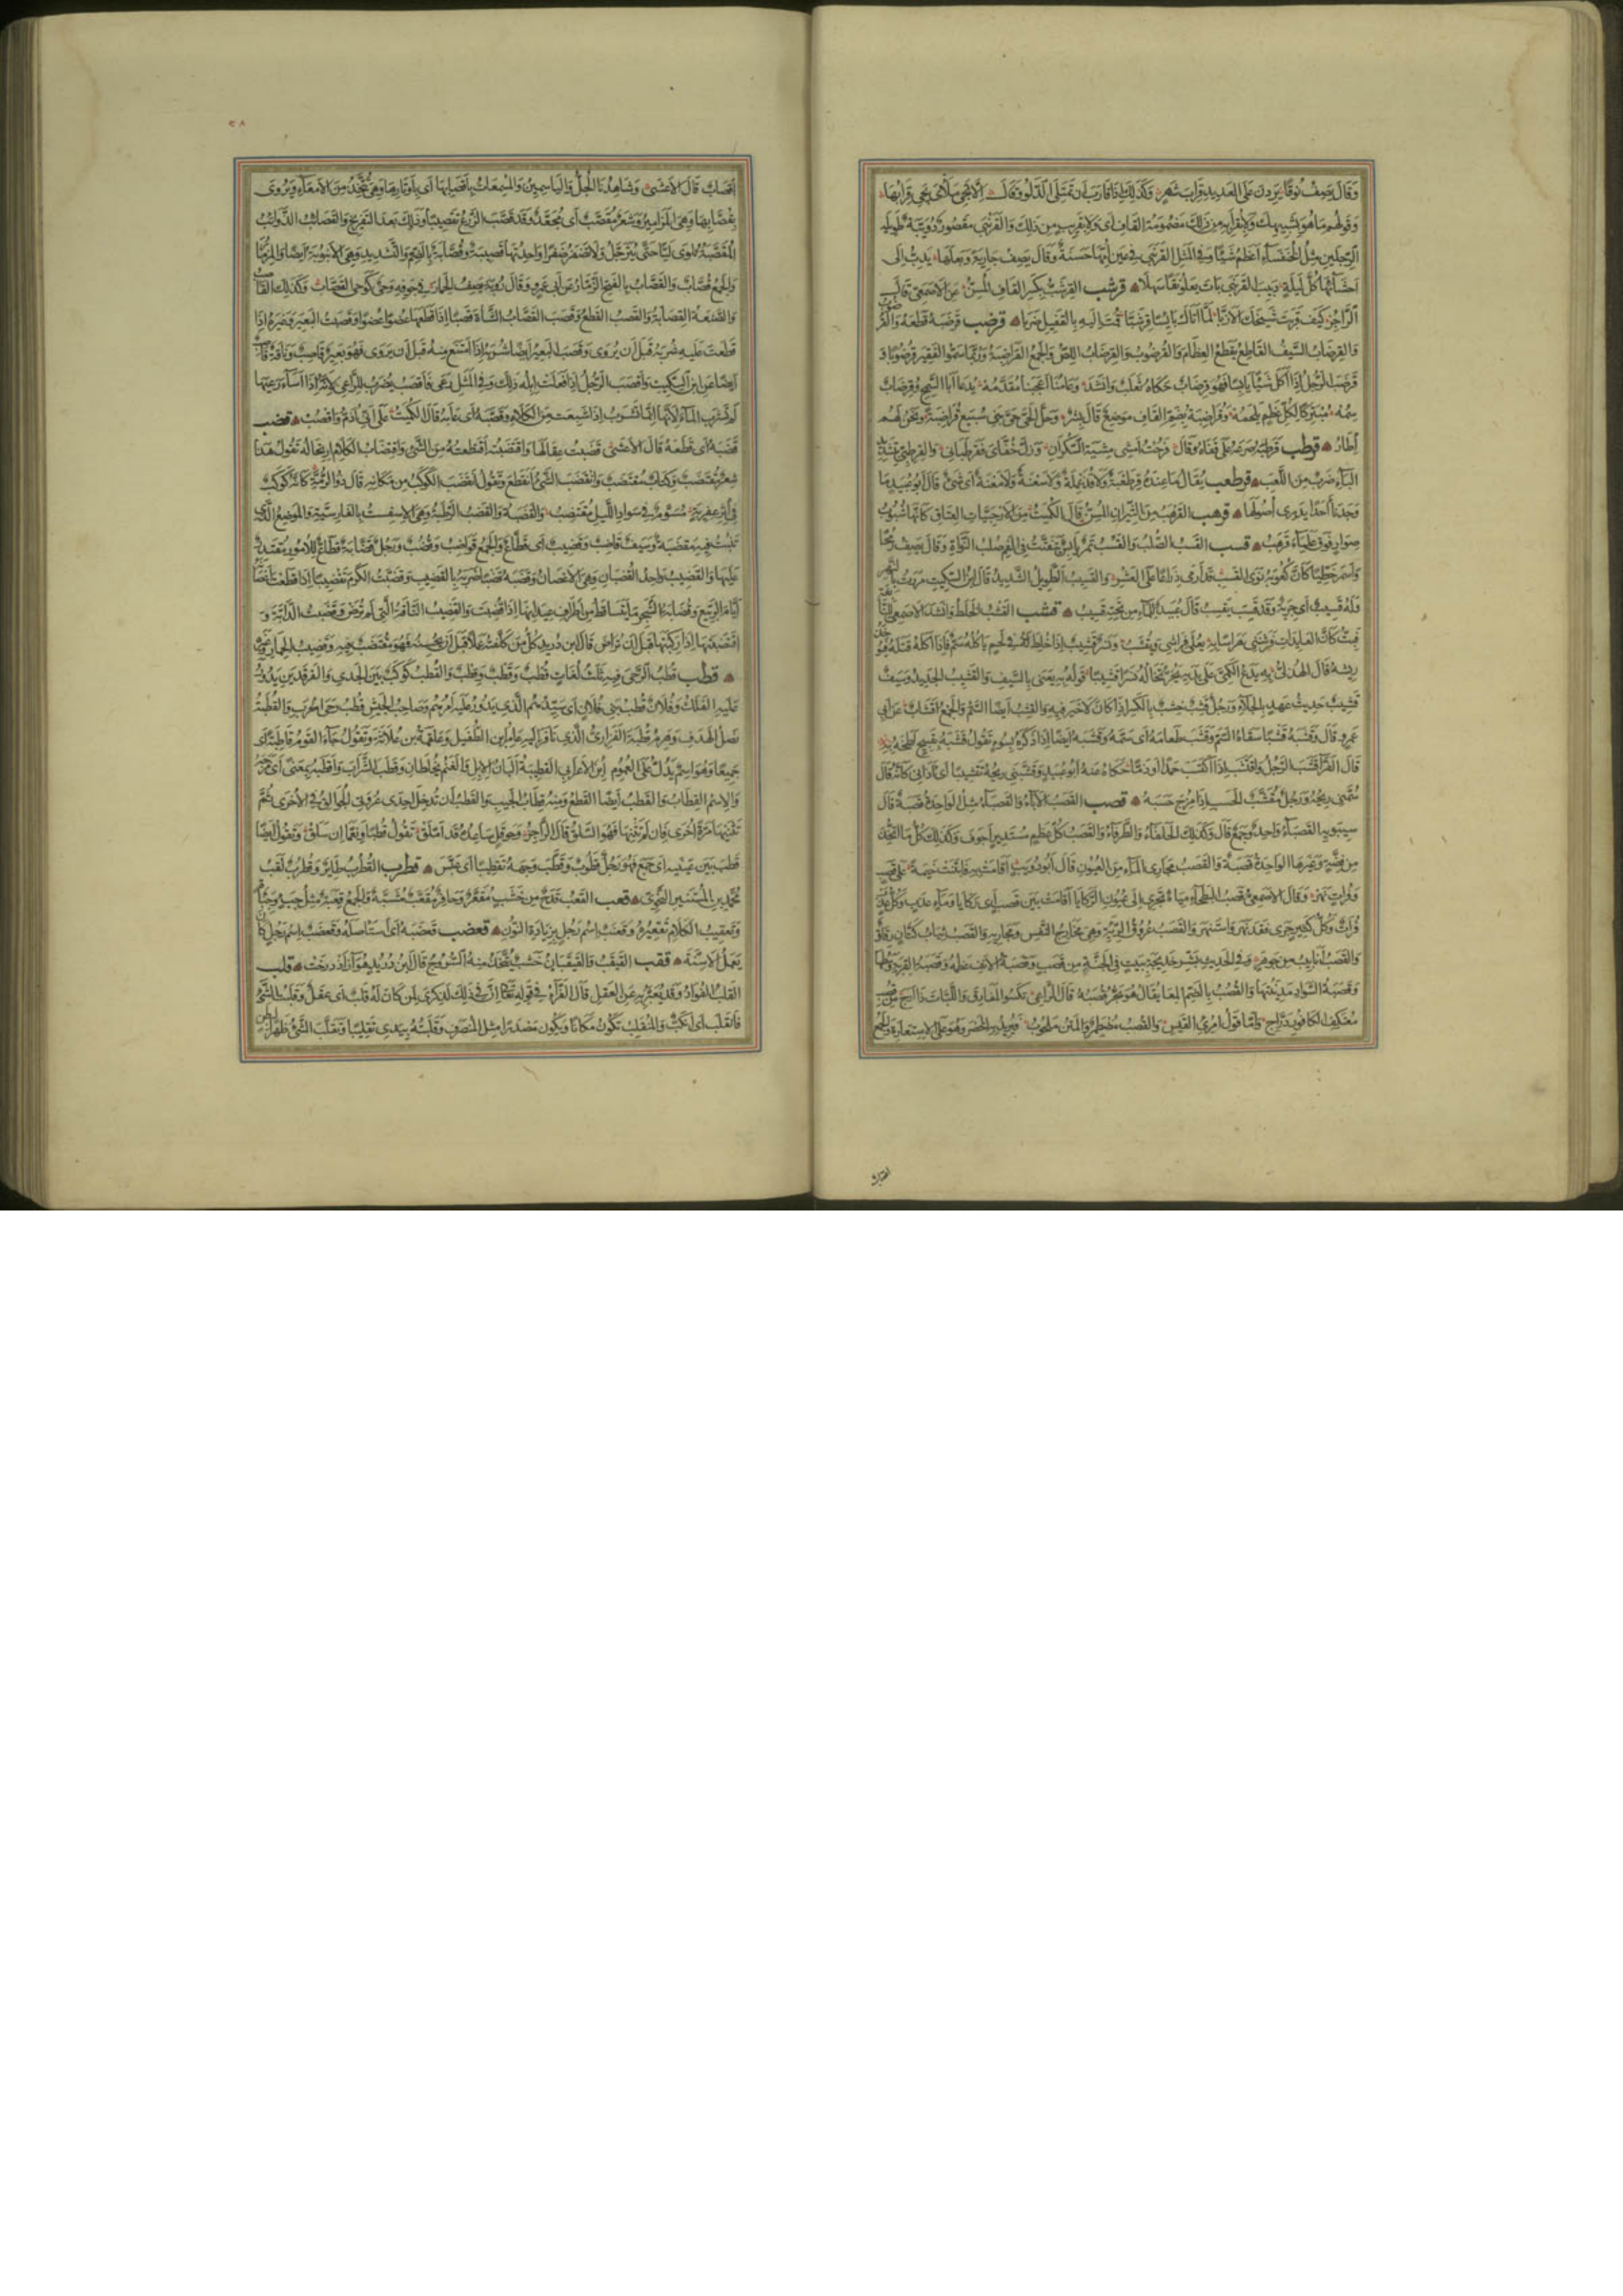 وَقَالَ يَصِفُ نُوقًا يَرِدْنَ عَلَى الْعَدِيدِ قِرَابَ شَهْرٍ وَكَذَلِكَ إِذَا قَارَبَ أَنْ يَمْتَلِئَ الدَّلْوُ وَقَالَ إِلَّا تَجِئْ مَلْأَى يَجِئْ قِرَابُهَا
وَقَوْلُهُمْ مَا هُوَ بِشَبِيهِكَ وَلَا بِقُرَابَةٍ مِنْ ذَلِكَ مَضْمُومَةَ الْقَافِ أَيْ وَلَا بِقَرِيبٍ مِنْ ذَلِكَ وَالْقَرَنْبَى مَقْصُورٌ دُوَيْبَّةٌ طَوِيلَةُ
الرِّجْلَيْنِ مِثْلُ الْخُنْفَسَاءِ أَعْظَمُ شَيْئًا وَفِي الْمَثَلِ الْقَرَنْبَى فِي عَيْنِ أُمِّهَا حَسَنَةٌ وَقَالَ يَصِفُ جَارِيَةً وَبَعْلَهَا يَدِبُّ إِلَى
أَحْشَائِهَا كُلَّ لَيْلَةٍ دَبِيبَ الْقَرَنْبَى بَاتَ يَعْلُو نَقًا سَهْلًا قرشب الْقِرْشَبُّ بِكَسْرِ الْقَافِ الْمُسِنُّ عَنِ الْأَصْمَعِيِّ قَالَ
الرَّاجِزُ كَيْفَ قَرَيْتَ شَيْخَكَ الْأَزَبَّا لَمَّا أَتَاكَ يَابِسًا قِرْشَبَّا قُمْتَ إِلَيْهِ بِالْقَفِيلِ ضَرْبًا قرضب قَرْضَبَهُ قَطَعَهُ
وَالْقِرْضَابُ السَّيْفُ الْقَاطِعُ يَقْطَعُ الْعِظَامَ وَالْقُرْضُوبُ وَالْقِرْضَابُ اللِّصُّ وَالْجَمْعُ الْقَرَاضِبَةُ وَرُبَّمَا سَمَّوُا الْفَقِيرَ قُرْضُوبًا وَ
قَرْضَبَ الرَّجُلُ إِذَا أَكَلَ شَيْئًا يَابِسًا فَهُوَ قِرْضَابٌ حَكَاهُ ثَعْلَبٌ وَأَنْشَدَ وَعَامُنَا أَعْجَبَنَا مُقَدَّمُهْ يُدْعَى أَبَا السَّمْحِ وَقِرْضَابٌ
سُمُهْ مُبْتَرِكًا لِكُلِّ عَظْمٍ يَلْحَمُهْ وَقُرَاضِبَةُ بِضَمِّ الْقَافِ مَوْضِعٌ قَالَ بِشْرٌ وَحَلَّ الْحَيُّ حَيُّ بَنِي سُبَيْعٍ قُرَاضِبَةً وَنَحْنُ لَهُمْ
إِطَارُ قرطب قَرْطَبَهُ صَرَعَهُ عَلَى قَفَاهُ وَقَالَ فَرُحْتُ أَمْشِي مِشْيَةَ السَّكْرَانِ وَزَلَّ خُفَّايَ فَقَرْطَبَانِي وَالْقِرْطِبَّى بِتَشْدِيدِ
الْبَاءِ ضَرْبٌ مِنَ اللَّعِبِ قرطعب يُقَالُ مَا عِنْدَهُ قِرْطَعْبَةٌ وَلَا قُذَعْمِلَةٌ وَلَا سَعْنَةٌ وَلَا مَعْنَةٌ أَيْ شَيْءٌ قَالَ أَبُو عُبَيْدٍ مَا
وَجَدْنَا أَحَدًا يَدْرِي أُصُولَهَا قرهب الْقَرْهَبُ مِنَ الثِّيرَانِ الْمُسِنُّ قَالَ الْكُمَيْتُ مِنَ الْأَرْحَبِيَّاتِ الْعِتَاقِ كَأَنَّهَا شَبُوبُ
صِوَارٍ فَوْقَ عَلْيَاءَ قَرْهَبُ قسب الْقَسْبُ الصُّلْبُ وَالْقَسْبُ تَمْرٌ يَابِسٌ يَتَفَتَّتُ فِي الْفَمِ صُلْبُ النَّوَاةِ وَقَالَ يَصِفُ رُمْحًا
وَأَسْمَرَ خَطِّيًّا كَأَنَّ كُعُوبَهُ نَوَى الْقَسْبِ قَدْ أَرْمَى ذِرَاعًا عَلَى الْعَشْرِ وَالْقَسِيبُ الطَّوِيلُ الشَّدِيدُ قَالَ ابْنُ السِّكِّيتِ مَرَرْتُ بِالنَّهْرِ
وَلَهُ قَسِيبٌ أَيْ جِرْيَةٌ وَقَدْ قَسَبَ يَقْسِبُ قَالَ عُبَيْدٌ لِلْمَاءِ مِنْ تَحْتِهِ قَسِيبُ قشب الْقَشْبُ الْخَلْطُ وَأَنْشَدَ الْأَصْمَعِيُّ لِلنَّابِغَةِ
فَبِتُّ كَأَنَّ الْعَائِدَاتِ فَرَشْنَنِي هَرَاسًا بِهِ يُعْلَى فِرَاشِي وَيُقْشَبُ وَنَسْرٌ قَشِيبٌ إِذَا خُلِطَ لَهُ فِي لَحْمٍ يَأْكُلُهُ سَمٌّ فَإِذَا أَكَلَهُ قَتَلَهُ فَيُؤْخَذُ
رِيشُهُ قَالَ الْهُذَلِيُّ بِهِ يَدَعُ الْكَمِيَّ عَلَى يَدَيْهِ يَخِرُّ تَخَالُهُ نَسْرًا قَشِيبَا قَوْلُهُ بِهِ يَعْنِي بِالسَّيْفِ وَالْقَشِيبُ الْجَدِيدُ وَسَيْفٌ
قَشِيبٌ حَدِيثُ عَهْدٍ بِالْجِلَاءِ وَرَجُلٌ قِشْبٌ خِشْبٌ بِالْكَسْرِ إِذَا كَانَ لَا خَيْرَ فِيهِ وَالْقِشْبُ أَيْضًا السَّمُّ وَالْجَمْعُ أَقْشَابٌ عَنْ أَبِي
عَمْرٍو قَالَ وَقَشَبَهُ قَشْبًا سَقَاهُ السَّمَّ وَقَشَبَ طَعَامَهُ أَيْ سَمَّهُ وَقَشَبَهُ أَيْضًا إِذَا ذَكَرَهُ بِسُوءٍ تَقُولُ قَشَبَهُ بِقَبِيحٍ لَطَخَهُ بِهِ
قَالَ الْفَرَّاءُ قَشَبَ الرَّجُلُ وَاقْتَشَبَ إِذَا اكْتَسَبَ حَمْدًا أَوْ ذَمًّا حَكَاهُ عَنْهُ أَبُو عُبَيْدٍ وَقَشَبَنِي رِيحُهُ تَقْشِيبًا أَيْ آذَانِي كَأَنَّهُ قَالَ
سَمَّنِي رِيحُهُ وَرَجُلٌ مُقَشَّبُ الْحَسَبِ إِذَا مُزِجَ حَسَبُهُ قصب الْقَصَبُ الْأَبَاءُ وَالْقَصْبَاءُ مِثْلُهُ الْوَاحِدَةُ قَصَبَةٌ قَالَ
سِيبَوَيْهِ الْقَصْبَاءُ وَاحِدٌ وَجَمْعٌ قَالَ وَكَذَلِكَ الْحَلْفَاءُ وَالطَّرْفَاءُ وَالْقَصَبُ كُلُّ عَظْمٍ مُسْتَدِيرٍ أَجْوَفَ وَكَذَلِكَ كُلُّ مَا اتُّخِذَ
مِنْ فِضَّةٍ وَغَيْرِهَا الْوَاحِدَةُ قَصَبَةٌ وَالْقَصَبُ مَجَارِي الْمَاءِ مِنَ الْعُيُونِ قَالَ أَبُو ذُؤَيْبٍ أَقَامَتْ بِهِ فَابْتَنَتْ خَيْمَةً عَلَى قَصَبٍ
وَفُرَاتٍ نَهَرْ وَقَالَ الْأَصْمَعِيُّ قَصَبُ الْبَطْحَاءِ مِيَاهٌ تَجْرِي إِلَى عُيُونِ الرَّكَايَا أَقَامَتْ بَيْنَ قَصَبٍ أَيْ رَكَايَا وَمَاءٍ عَذْبٍ وَكُلُّ عَذْبٍ
فُرَاتٌ وَكُلُّ كَثِيرٍ جَرَى فَقَدْ نَهَرَ وَاسْتَنْهَرَ وَالْقَصَبُ عُرُوقُ الرِّئَةِ وَهِيَ مَخَارِجُ النَّفَسِ وَمَجَارِيهِ وَالْقَصَبُ ثِيَابُ كَتَّانٍ رِقَاقٌ
وَالْقَصَبُ أَنَابِيبُ مِنْ جَوْهَرٍ وَفِي الْحَدِيثِ بَشِّرْ خَدِيجَةَ بِبَيْتٍ فِي الْجَنَّةِ مِنْ قَصَبٍ وَقَصَبَةُ الْأَنْفِ عَظْمُهُ وَقَصَبَةُ الْقَرْيَةِ وَسَطُهَا
وَقَصَبَةُ السَّوَادِ مَدِينَتُهَا وَالْقُصْبُ بِالضَّمِّ الْمِعَا يُقَالُ هُوَ يَجُرُّ قُصْبَهُ قَالَ الرَّاعِي تَكْسُو الْمَفَارِقَ وَاللَّبَّاتِ ذَا أَرَجٍ مِنْ قُصْبِ
مُعْتَلِفِ الْكَافُورِ دَرَّاجِ وَأَمَّا قَوْلُ امْرِئِ الْقَيْسِ وَالْقُصْبُ مُضْطَمِرٌ وَالْمَتْنُ مَلْحُوبُ فَيُرِيدُ بِهِ الْخَصْرَ وَهُوَ عَلَى الِاسْتِعَارَةِ وَالْجَمْعُ
أَقْصَابٌ
أَقْصَابٌ قَالَ الْأَعْشَى وَشَاهِدُنَا الْجُلُّ وَالْيَاسَمِينُ وَالْمُسْمِعَاتُ بِأَقْصَابِهَا أَيْ بِأَوْتَارِهَا وَهِيَ تُتَّخَذُ مِنَ الْأَمْعَاءِ وَيُرْوَى
بِقُصَّابِهَا وَهِيَ الْمَزَامِيرُ وَشَعْرٌ مُقَصَّبٌ أَيْ مُجَعَّدٌ وَقَدْ قَصَّبَ الزَّرْعُ تَقْصِيبًا وَذَلِكَ بَعْدَ التَّفْرِيخِ وَالْقَصَائِبُ الذَّوَائِبُ
الْمُقَصَّبَةُ تُلْوَى لَيًّا حَتَّى تَتَرَجَّلَ وَلَا تُضْفَرُ ضَفْرًا وَاحِدَتُهَا قَصِيبَةٌ وَقُصَّابَةٌ بِالضَّمِّ وَالتَّشْدِيدِ وَهِيَ الْأُنْبُوبَةُ أَيْضًا وَالْمِزْمَارُ
وَالْجَمْعُ قُصَّابٌ وَالْقَصَّابُ بِالْفَتْحِ الزَّمَّارُ عَنْ أَبِي عَمْرٍو وَقَالَ رُؤْبَةُ يَصِفُ الْحِمَارَ فِي جَوْفِهِ وَحْيٌ كَوَحْيِ الْقَصَّابْ وَكَذَلِكَ الْقَاصِبُ
وَالصَّنْعَةُ الْقِصَابَةُ وَالْقَصْبُ الْقَطْعُ وَقَصَبَ الْقَصَّابُ الشَّاةَ قَصْبًا إِذَا قَطَعَهَا عُضْوًا عُضْوًا وَقَصَبْتُ الْبَعِيرَ وَغَيْرَهُ إِذَا
قَطَعْتَ عَلَيْهِ شُرْبَهُ قَبْلَ أَنْ يَرْوَى وَقَصَبَ الْبَعِيرُ أَيْضًا شُرْبَهُ إِذَا امْتَنَعَ مِنْهُ قَبْلَ أَنْ يَرْوَى فَهُوَ بَعِيرٌ قَاصِبٌ وَنَاقَةٌ قَاصِبٌ
أَيْضًا عَنِ ابْنِ السِّكِّيتِ وَأَقْصَبَ الرَّجُلُ إِذَا فَعَلَتْ إِبِلُهُ ذَلِكَ وَفِي الْمَثَلِ رَعَى فَأَقْصَبَ يُضْرَبُ لِلرَّاعِي لِأَنَّهُ إِذَا أَسَاءَ رَعْيَهَا
لَمْ تَشْرَبِ الْمَاءَ لِأَنَّهَا إِنَّمَا تَشْرَبُ إِذَا شَبِعَتْ مِنَ الْكَلَأِ وَقَصَبَهُ أَيْ عَابَهُ قَالَ الْكُمَيْتُ عَلَى أَنِّي أُذَمُّ وَأُقْصَبُ قضب
قَضَبَهُ أَيْ قَطَعَهُ قَالَ الْأَعْشَى قَضَبْتُ عِقَالَهَا وَاقْتَضَبْتُهُ اقْتَطَعْتُهُ مِنَ الشَّيْءِ وَاقْتِضَابُ الْكَلَامِ ارْتِجَالُهُ تَقُولُ هَذَا
شِعْرٌ مُقْتَضَبٌ وَكِتَابٌ مُقْتَضَبٌ وَانْقَضَبَ الشَّيْءُ انْقَطَعَ وَتَقُولُ انْقَضَبَ الْكَوْكَبُ مِنْ مَكَانِهِ قَالَ ذُو الرُّمَّةِ كَأَنَّهُ كَوْكَبٌ
فِي إِثْرِ عِفْرِيَةٍ مُسَوَّمٌ فِي سَوَادِ اللَّيْلِ مُنْقَضِبُ وَالْقَضْبَةُ وَالْقَضْبُ الرَّطْبَةُ وَهِيَ الْإِسْفِسْتُ بِالْفَارِسِيَّةِ وَالْمَوْضِعُ الَّذِي
تَنْبُتُ فِيهِ مَقْضَبَةٌ وَسَيْفٌ قَاضِبٌ وَقَضِيبٌ أَيْ قَطَّاعٌ وَالْجَمْعُ قَوَاضِبُ وَقُضُبٌ وَرَجُلٌ قَضَّابَةٌ قَطَّاعٌ لِلْأُمُورِ مُقْتَدِرٌ
عَلَيْهَا وَالْقَضِيبُ وَاحِدُ الْقُضْبَانِ وَهِيَ الْأَغْصَانُ وَقَضَبَهُ قَضْبًا ضَرَبَهُ بِالْقَضِيبِ وَقَضَّبْتُ الْكَرْمَ تَقْضِيبًا إِذَا قَطَعْتَ أَغْصَانَهُ
أَيَّامَ الرَّبِيعِ وَقُضَابَةُ الشَّجَرِ مَا يَتَسَاقَطُ مِنْ أَطْرَافِ عِيدَانِهَا إِذَا قُضِبَتْ وَالْقَضِيبُ النَّاقَةُ الَّتِي لَمْ تُرَضْ وَقَضَبْتُ الدَّابَّةَ وَ
اقْتَضَبْتُهَا إِذَا رَكِبْتَهَا قَبْلَ أَنْ تُرَاضَ قَالَ ابْنُ دُرَيْدٍ كُلُّ مَنْ كَلَّفْتَهُ عَمَلًا قَبْلَ أَنْ يُحْسِنَهُ فَهُوَ مُقْتَضَبٌ فِيهِ وَقَضِيبُ الْحِمَارِ وَغَيْرِهِ
قطب قُطْبُ الرَّحَى فِيهِ ثَلَاثُ لُغَاتٍ قُطْبٌ وَقَطْبٌ وَقِطْبٌ وَالْقُطْبُ كَوْكَبٌ بَيْنَ الْجَدْيِ وَالْفَرْقَدَيْنِ يَدُورُ
عَلَيْهِ الْفَلَكُ وَفُلَانٌ قُطْبُ بَنِي فُلَانٍ أَيْ سَيِّدُهُمُ الَّذِي يَدُورُ عَلَيْهِ أَمْرُهُمْ وَصَاحِبُ الْجَيْشِ قُطْبُ رَحَى الْحَرْبِ وَالْقُطْبَةُ
نَصْلُ الْهَدَفِ وَهَرِمُ بْنُ قُطْبَةَ الْفَزَارِيُّ الَّذِي نَافَرَ إِلَيْهِ عَامِرُ ابْنُ الطُّفَيْلِ وَعَلْقَمَةُ بْنُ عُلَاثَةَ وَتَقُولُ جَاءَ الْقَوْمُ قَاطِبَةً أَيْ
جَمِيعًا وَهُوَ اسْمٌ يَدُلُّ عَلَى الْعُمُومِ ابْنُ الْأَعْرَابِيِّ الْقَطِيبَةُ أَلْبَانُ الْإِبِلِ وَالْغَنَمِ يُخْلَطَانِ وَقَطَبَ الشَّرَابَ وَأَقْطَبَهُ بِمَعْنًى أَيْ مَزَجَهُ
وَالِاسْمُ الْقِطَابُ وَالْقَطْبُ أَيْضًا الْقَطْعُ وَمِنْهُ قِطَابُ الْجَيْبِ وَالْقَطْبُ أَنْ تُدْخِلَ إِحْدَى عُرْوَتَيِ الْجُوَالِقِ فِي الْأُخْرَى ثُمَّ
تَثْنِيَهَا مَرَّةً أُخْرَى فَإِنْ لَمْ تَثْنِهَا فَهُوَ السَّلْقُ قَالَ الرَّاجِزُ وَحَوْقَلٍ سَاعِدُهُ قَدِ امَّلَقْ يَقُولُ قَطْبًا وَنِعِمَّا إِنْ سَلَقْ وَتَقُولُ أَيْضًا
قَطَبَ بَيْنَ عَيْنَيْهِ أَيْ جَمَعَ فَهُوَ رَجُلٌ قَطُوبٌ وَقَطَّبَ وَجْهَهُ تَقْطِيبًا أَيْ عَبَسَ قطرب الْقُطْرُبُ طَائِرٌ وَقُطْرُبٌ لَقَبُ
مُحَمَّدِ بْنِ الْمُسْتَنِيرِ النَّحْوِيِّ قعب الْقَعْبُ قَدَحٌ مِنْ خَشَبٍ مُقَعَّرٌ وَحَافِرٌ مُقَعَّبٌ مُشَبَّهٌ وَالْجَمْعُ قِعَبَةٌ مِثْلُ جَبْءٍ وَجِبَأَةٍ
وَتَقْعِيبُ الْكَلَامِ تَقْعِيرُهُ وَقَعْنَبٌ اسْمُ رَجُلٍ بِزِيَادَةِ النُّونِ قعضب قَعْضَبَهُ أَيِ اسْتَأْصَلَهُ وَقَعْضَبٌ اسْمُ رَجُلٍ كَانَ
يَعْمَلُ الْأَسِنَّةَ ققب الْقَيْقَبُ وَالْقَيْقَبَانُ خَشَبٌ يُتَّخَذُ مِنْهُ السُّرُوجُ قَالَ ابْنُ دُرَيْدٍ هُوَ آزَاذْ دِرَخْت قلب
الْقَلْبُ الْفُؤَادُ وَقَدْ يُعَبَّرُ بِهِ عَنِ الْعَقْلِ قَالَ الْفَرَّاءُ فِي قَوْلِهِ تَعَالَى إِنَّ فِي ذَلِكَ لَذِكْرَى لِمَنْ كَانَ لَهُ قَلْبٌ أَيْ عَقْلٌ وَقَلَبْتُ الشَّيْءَ
فَانْقَلَبَ أَيِ انْكَبَّ وَالْمُنْقَلَبُ يَكُونُ مَكَانًا وَيَكُونُ مَصْدَرًا مِثْلُ الْمُنْصَرَفِ وَقَلَّبْتُهُ بِيَدِي تَقْلِيبًا وَتَقَلَّبَ الشَّيْءُ ظَهْرًا لِبَطْنٍ